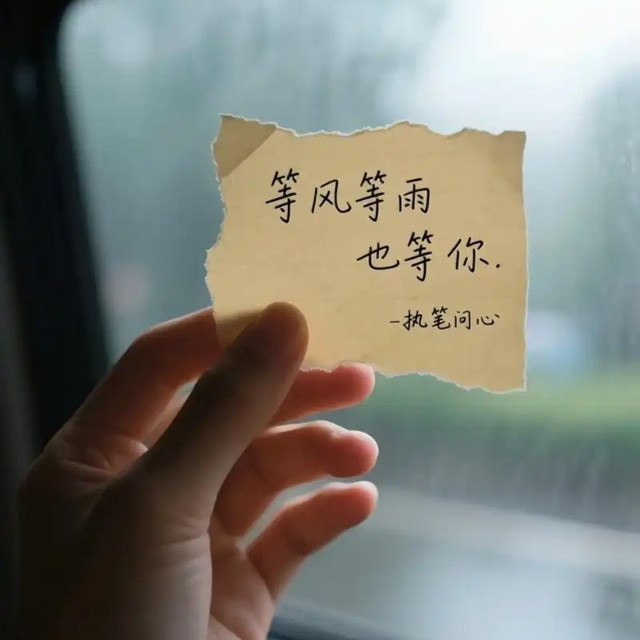 等风等雨
也等你.
-执笔问心